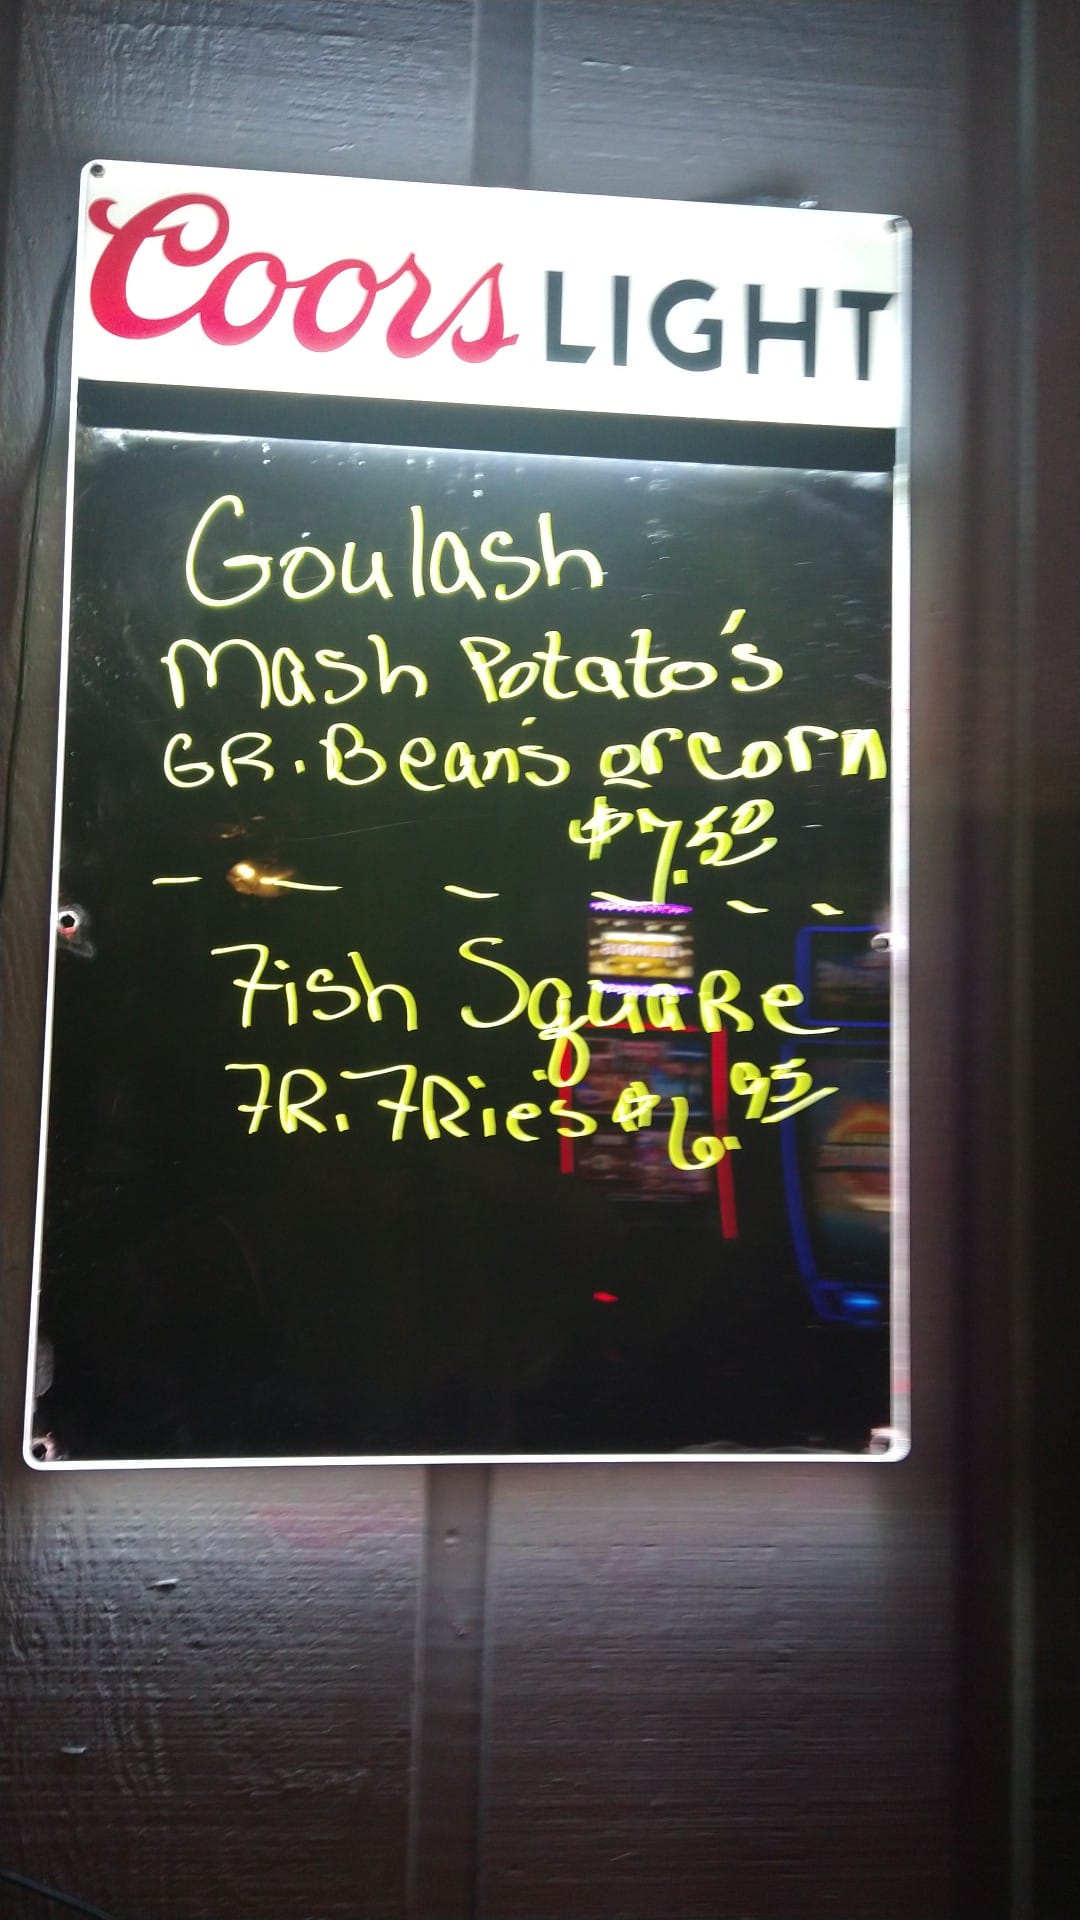 Coors LIGHT
Goulash
Mash Potato's
GR. Bean's or corn
$7.50
Fish Square
FR. FRies $6.95